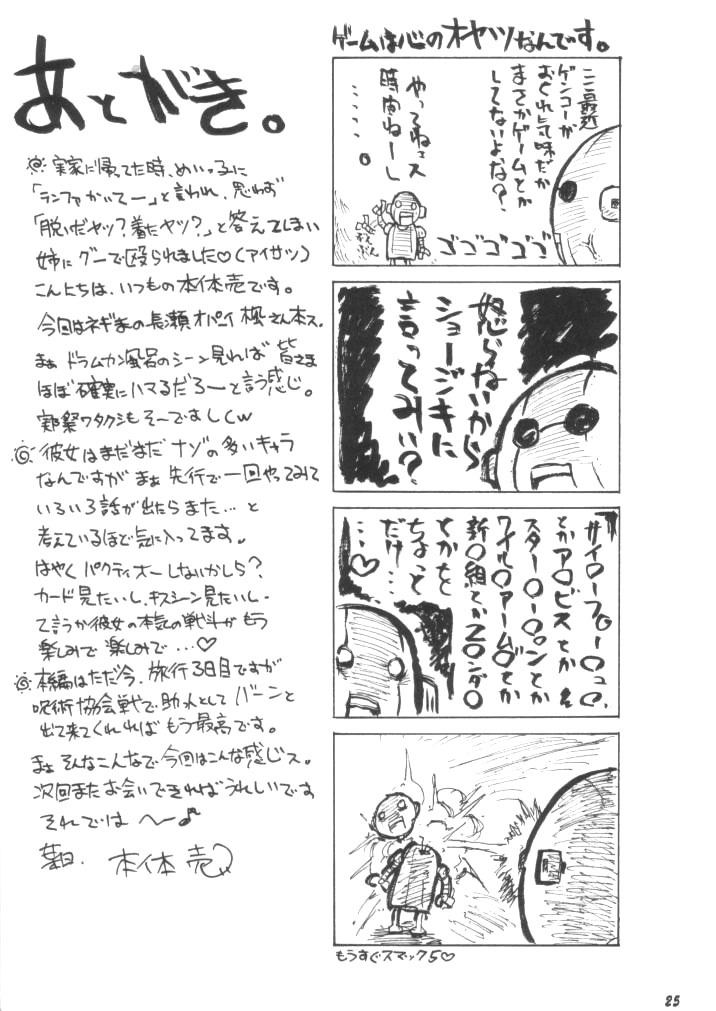 あとがき。
実家に帰ってた時、めいっ子に
「ランファかいてー」と言われ、思わず
「脱いだヤツ?着たヤツ?」と答えてしまい
姉にグーで殴られました♡(アイサツ)
こんにちは、いつもの本体売です。
今回はネギまの長瀬オパーイ楓さん本ス。
まぁドラムカン風呂のシーン見れば皆さま
ほぼ確実にハマるだろーと言う感じ。
実際ワタクシもそーですしw
彼女はまだまだナゾの多いキャラ
なんですがまぁ先行で一回やってみて
いろいろ話が出たらまた…と
考えているほど気に入ってます。
はやくパクティオーしないかしら?
カード見たいし、キスシーン見たいし、
て言うか彼女の本気の戦斗がもう
楽しみで楽しみで…♡
本編はただ今、旅行3日目ですが
呪術協会戦で助っ人としてバーンと
出て来てくれればもう最高です。
まぁそんなこんなで今回はこんな感じス。
次回またお会いできればうれしいです
それでは〜♪
本体売
ゲームは心のオヤツなんです。
ここ最近
ゲンコーが
おくれ気味だが
まさかゲームとか
してないよな?
やってねェス
時間ねーし
……。
ゴゴゴゴゴ
怒らないから
ショージキに
言ってみい?
サイ〇ーフォー〇ュ〇、
とかア〇ビスとか
スター〇ー〇ンとか
ワイル〇アームズとか
新〇組とかZ〇ンダ〇
とかをと
ちょっと
だけ…
…♡
もうすぐスマック5♡
25